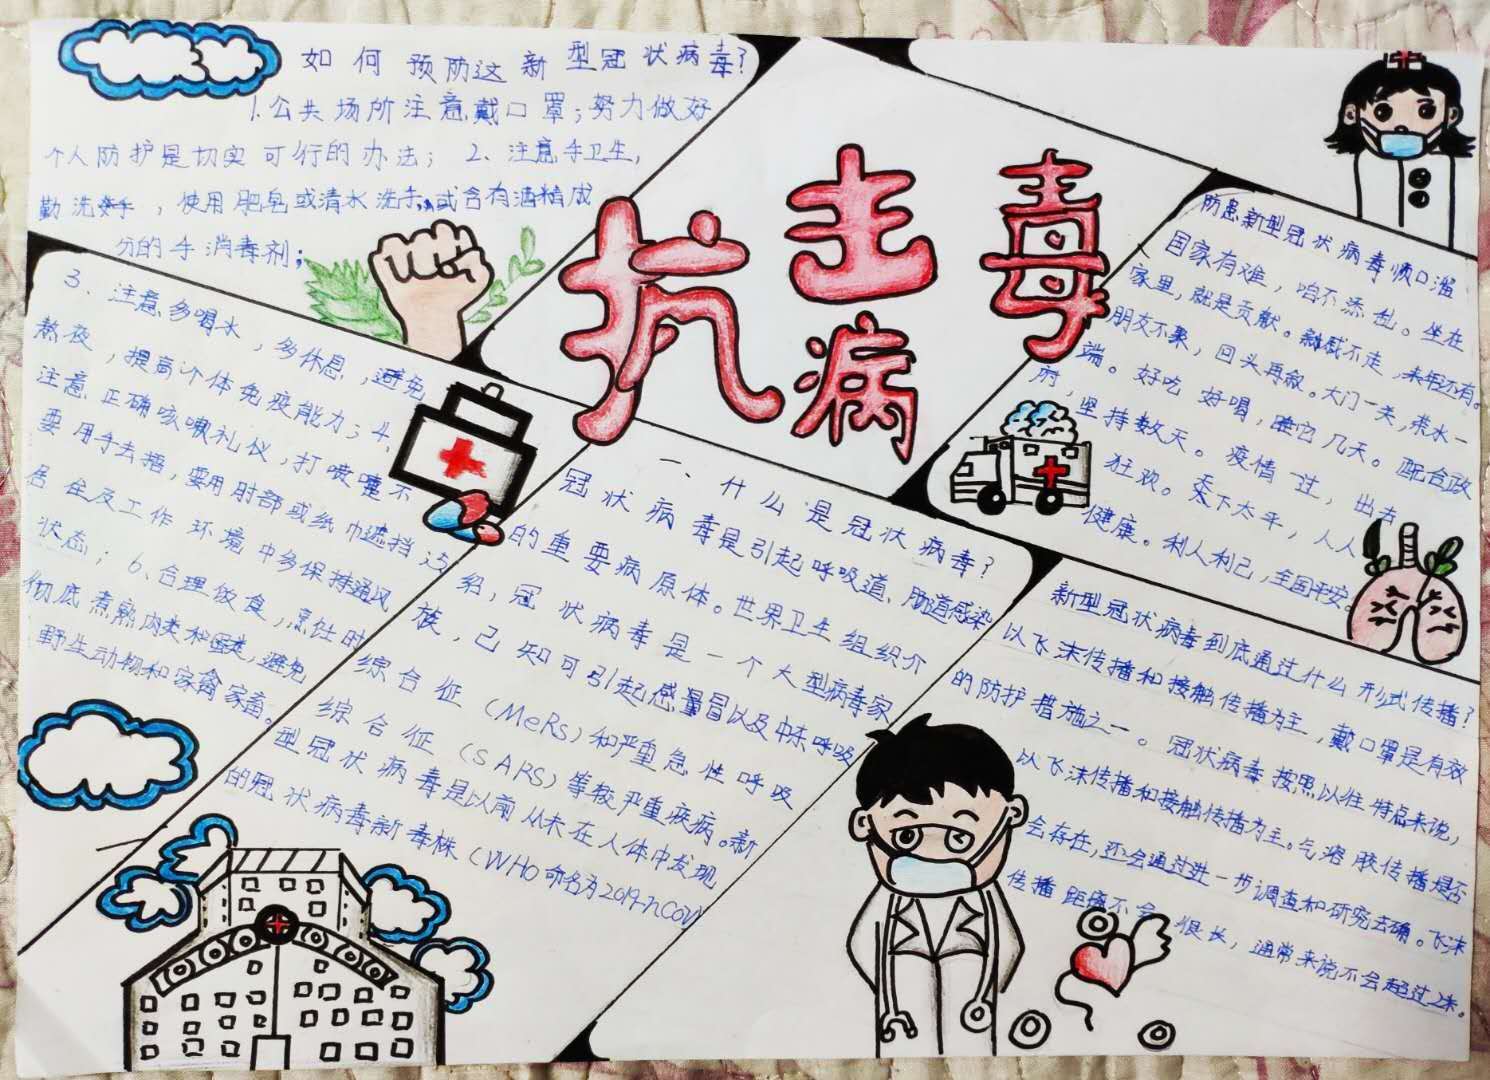 如何预防这新型冠状病毒?
1.公共场所注意戴口罩;努力做好
个人防护是切实可行的办法;2、注意手卫生,
勤洗手,使用肥皂或清水洗手,或含有酒精成
分的手消毒剂;
3、注意多喝水,多休息,避免
熬夜,提高个体免疫能力;4、
注意正确咳嗽礼仪,打喷嚏不
要用手去捂,要用肘部或纸巾遮挡;5、
居住及工作环境中多保持通风
状态;6、合理饮食,烹饪时
彻底煮熟肉类和蛋类,避免
野生动物和家禽家畜。
抗击病毒
一、什么是冠状病毒?
冠状病毒是引起呼吸道、肠道感染
的重要病原体。世界卫生组织介
绍,冠状病毒是一个大型病毒家
族,已知可引起感冒以及中东呼吸
综合征(MeRs)和严重急性呼吸
综合征(SARS)等较严重疾病。新
型冠状病毒是以前从未在人体中发现
的冠状病毒新毒株(WHO命名为2019-nCOV
防患新型冠状病毒顺口溜
国家有难,咱不添乱。坐在
家里,就是贡献。不走,来年还有。
朋友不聚,回头再叙。大门一关,茶水一
端。好吃好喝,睡它几天。配合政
府,坚持数天。疫情过,出去
狂欢。天下太平,人人
健康。利人利己,全国平安。
新型冠状病毒到底通过什么形式传播?
以飞沫传播和接触传播为主,戴口罩是有效
的防护措施之一。冠状病毒按照以往特点来说,
以飞沫传播和接触传播为主。气溶胶传播是否
会存在,还会通过进一步调查和研究去确。飞沫
传播距离不会很长,通常来说不会超过2米。